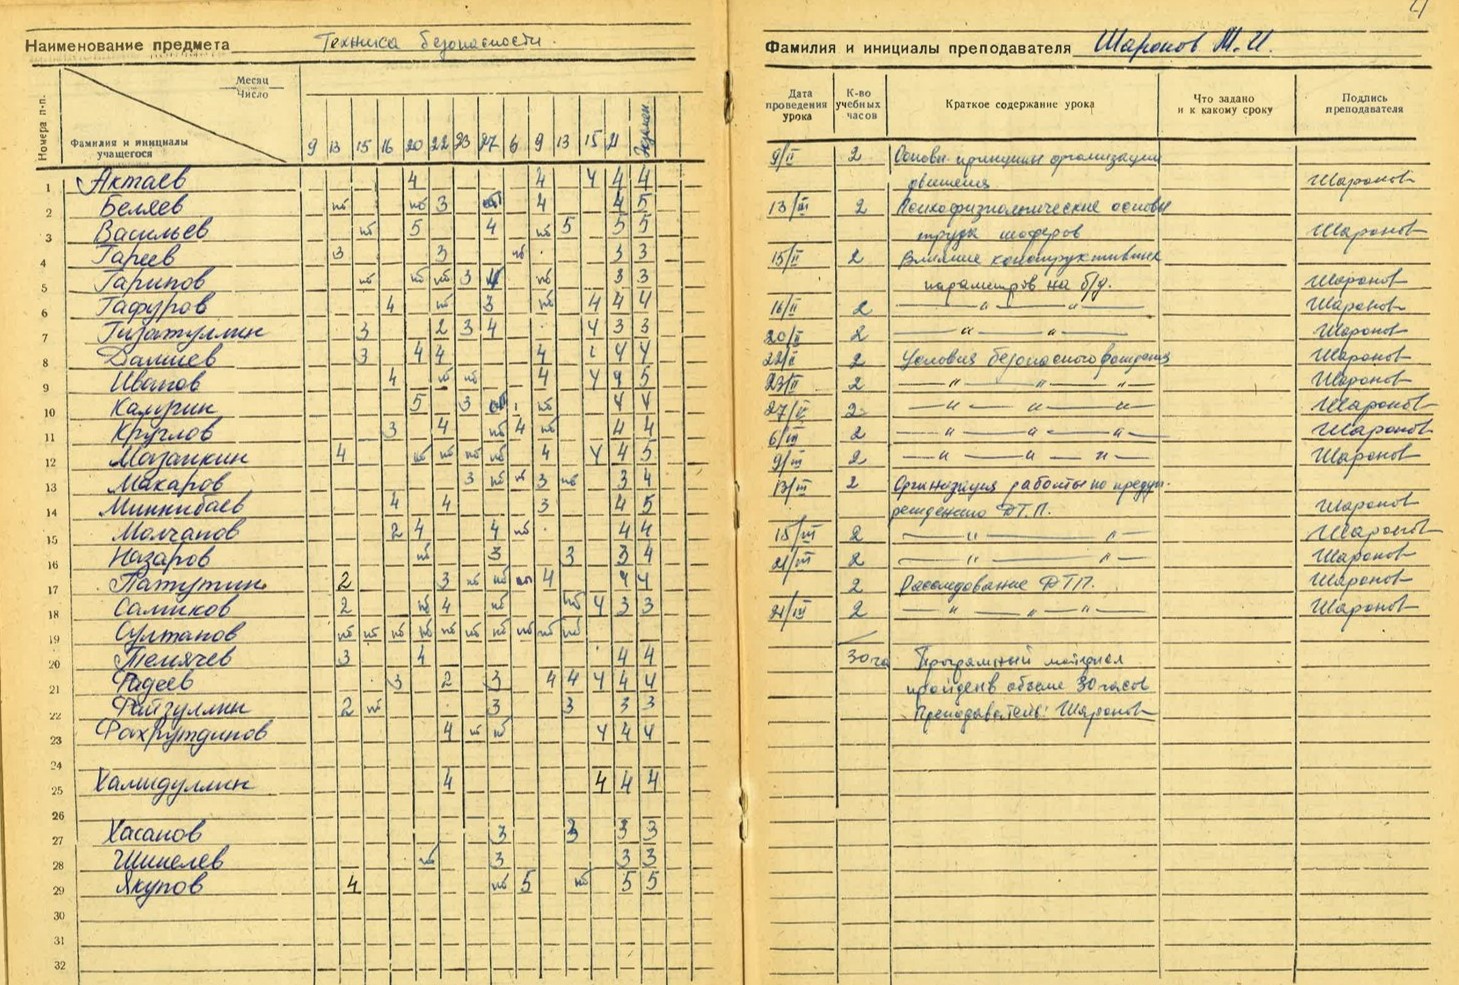 4
Наименование предмета Техника безопасности.
Номера п-п.
Месяц
Число
Фамилия и инициалы
учащегося
9 13 15 16 20 22 23 27 6 9 13 15 21
1 Актаев 4 4 4 4 4
2 Беляев нб нб 3 4 4 5
3 Васильев нб 5 4 нб 5 5 5
4 Гареев 3 3 нб 3 3
5 Гарипов нб нб нб 3 4 нб 3 3
6 Гафуров 4 нб 3 нб 4 4 4
7 Гизатуллин 3 2 3 4 4 3 3
8 Дамиев 3 4 4 4 4 4
9 Иванов 4 нб нб 4 4 4 5
10 Камрин 5 3 нб 4 4
11 Круглов 3 4 нб 4 нб 4 4
12 Мозаикин 4 нб нб нб нб 4 4 4 5
13 Макаров 3 нб н 3 нб 3 4
14 Миннибаев 4 4 3 4 5
15 Молчанов 2 4 4 нб 4 4
16 Назаров нб 3 3 3 4
17 Патутин 2 3 нб нб нб 4 4 4
18 Салихов 2 нб 4 нб нб 4 3 3
19 Султанов нб нб нб нб нб нб нб нб нб нб
20 Темячев 3 4 4 4
21 Фадеев 3 2 3 4 4 4 4 4
22 Файзуллин 2 н 3 3 3 3
23 Фахрутдинов 4 нб нб 4 4 4
24
25 Хамидуллин 4 4 4 4
26
27 Хасанов 3 3 3 3
28 Шишелев нб 3 3 3
29 Якупов 4 нб 5 нб 5 5
30
31
32
Фамилия и инициалы преподавателя Шаронов М.И.
Дата
проведения
урока
К-во
учебных
часов
Краткое содержание урока
Что задано
и к какому сроку
Подпись
преподавателя
9/II 2 Основн. принципы организации
движения Шаронов
13/III 2 Психофизиологические основы
труда шоферов Шаронов
15/II 2 Влияние конструктивных
параметров на б/д. Шаронов
16/II 2 — " — " — Шаронов
20/II 2 — " — " — Шаронов
22/II 2 Условия безопасного вождения Шаронов
23/II 2 — " — " — " — Шаронов
27/II 2 — " — " — " Шаронов
6/III 2 — " — " — " — Шаронов
9/III 2 — " — " — " — Шаронов
13/III 2 Организация работы по предуп-
реждению ДТП. Шаронов
15/III 2 — " — " — Шаронов
21/III 2 — " — " — Шаронов
2 Расследование ДТП. Шаронов
21/III 2 — " — " — Шаронов
30 ча Програмный материал
пройден в объеме 30 часов
Преподаватель: Шаронов